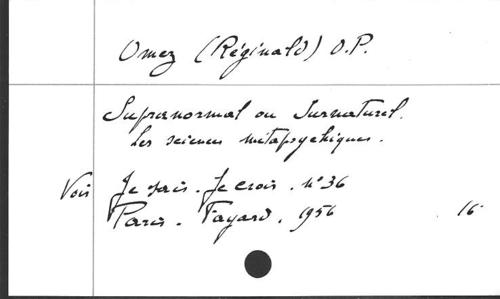 Omez (Réginald) O.P.
Supranormal ou Surnaturel.
Les sciences métapsychiques.
Voir Je sais. Je crois. n° 36
Paris. Fayard. 1956 16